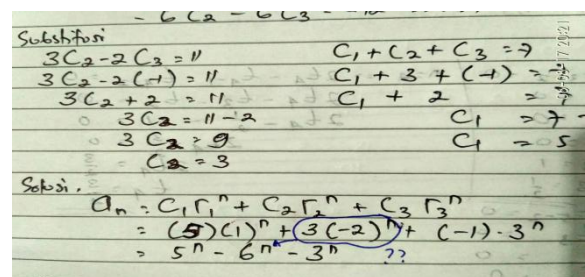 - 6C2 - 6C3 =
Substitusi
3C2 - 2C3 = 11
3C2 - 2(-1) = 11
3C2 + 2 = 11
3C2 = 11 - 2
3C2 = 9
C2 = 3
C1 + C2 + C3 = 7
C1 + 3 + (-1) =
C1 + 2 =
C1 = 7 -
C1 = 5
Solusi.
an = C1 r1^n + C2 r2^n + C3 r3^n
= (5)(1)^n + 3(-2)^n + (-1) · 3^n
= 5^n - 6^n - 3^n ??